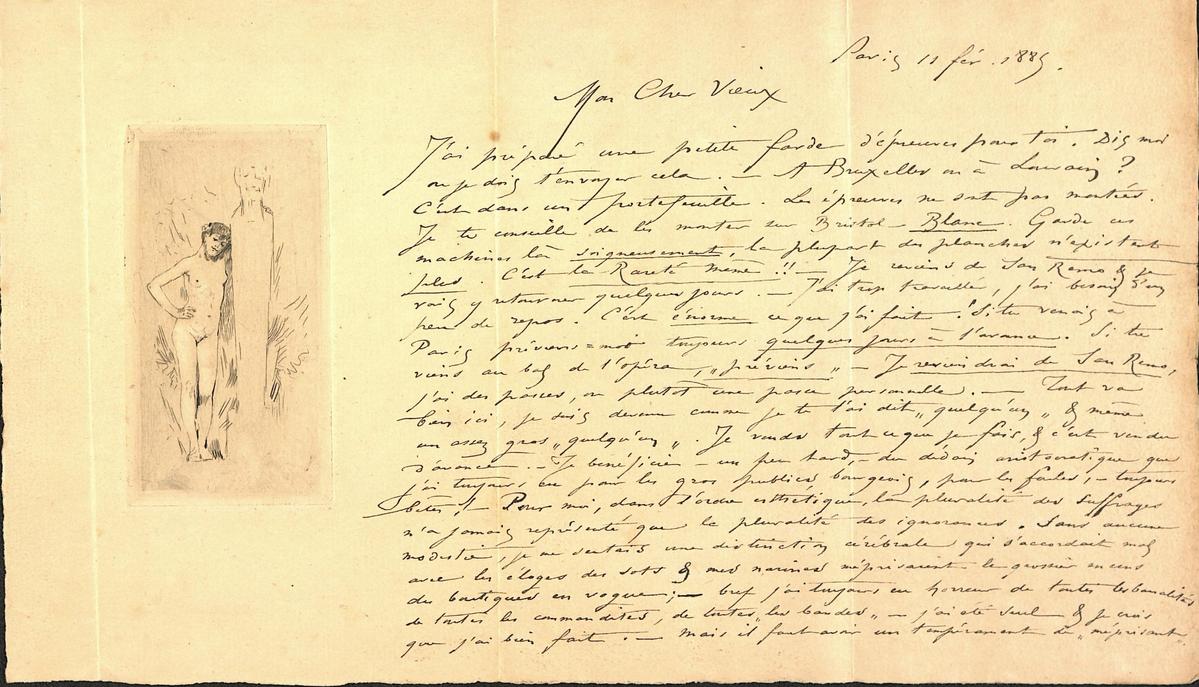 Paris 11 fév. 1885.
Mon Cher Vieux
J'ai préparé une petite farde d'épreuves pour toi. Dis moi
où je dois t'envoyer cela. — A Bruxelles ou à Louvain ?
C'est dans un portefeuille. Les épreuves ne sont pas montées.
Je te conseille de les monter sur Bristol — Blanc. Garde ces
machines là soigneusement, la plupart des planches n'existent
plus. C'est la Rareté même !! — Je reviens de San Remo & je
vais y retourner quelques jours. — J'ai trop travaillé, j'ai besoin d'un
peu de repos. C'est énorme ce que j'ai fait ! Si tu venais à
Paris préviens=moi toujours quelques jours à l'avance. Si tu
viens au bal de l'opéra, „préviens„ — Je reviendrai de San Remo,
j'ai des passes, ou plutôt une passe personnelle. — Tout va
bien ici, je suis devenu comme je te l'ai dit „quelqu'un„ & même
un assez gros „quelqu'un„. Je vends tout ce que je fais, & c'est vendu
d'avance. — Je bénéficie — un peu tard, — du dédain aristocratique que
j'ai toujours eu pour les gros publics bourgeois, pour les foules, — toujours
bêtes ! — Pour moi, dans l'ordre esthétique, la pluralité des suffrages
n'a jamais représenté que la pluralité des ignorances. Sans aucune
modestie, je me sentais une distinction cérébrale qui s'accordait mal
avec les éloges des sots & mes narines méprisaient le grossier encens
des boutiques en vogue ; — bref j'ai toujours eu horreur de toutes les banalités
de toutes les commandites, de toutes „les bandes„ — j'ai été seul & je crois
que j'ai bien fait. — Mais il faut avoir un tempérament de „méprisant„